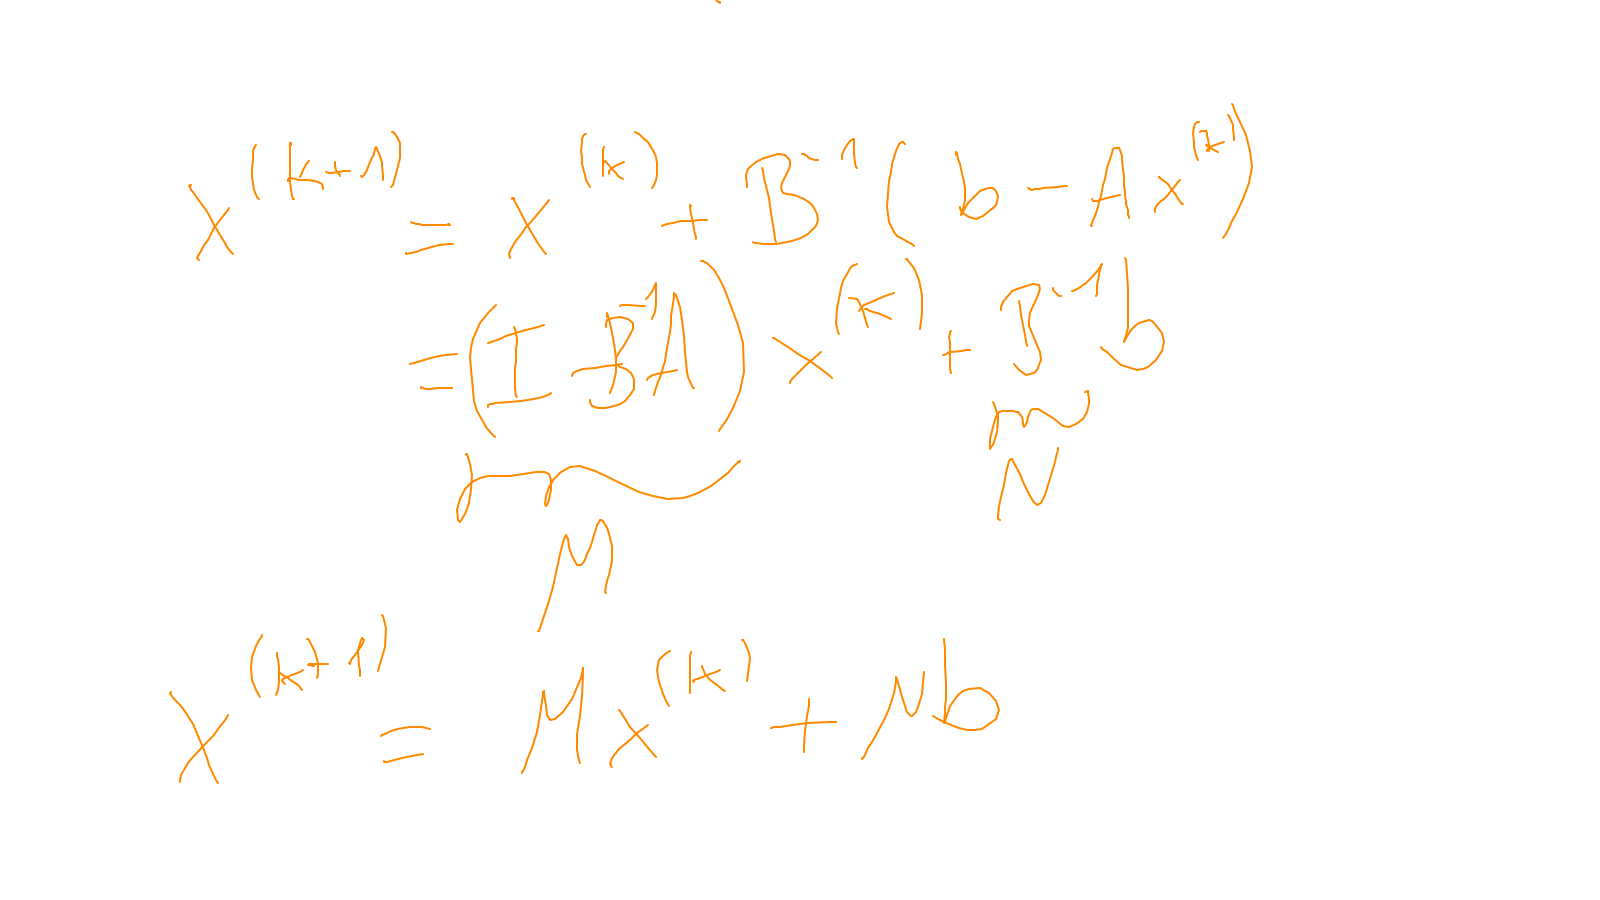 x^(k+1) = x^(k) + B^-1 ( b - A x^(k) )
= ( I - B^-1 A ) x^(k) + B^-1 b
N
M
x^(k+1) = M x^(k) + N b